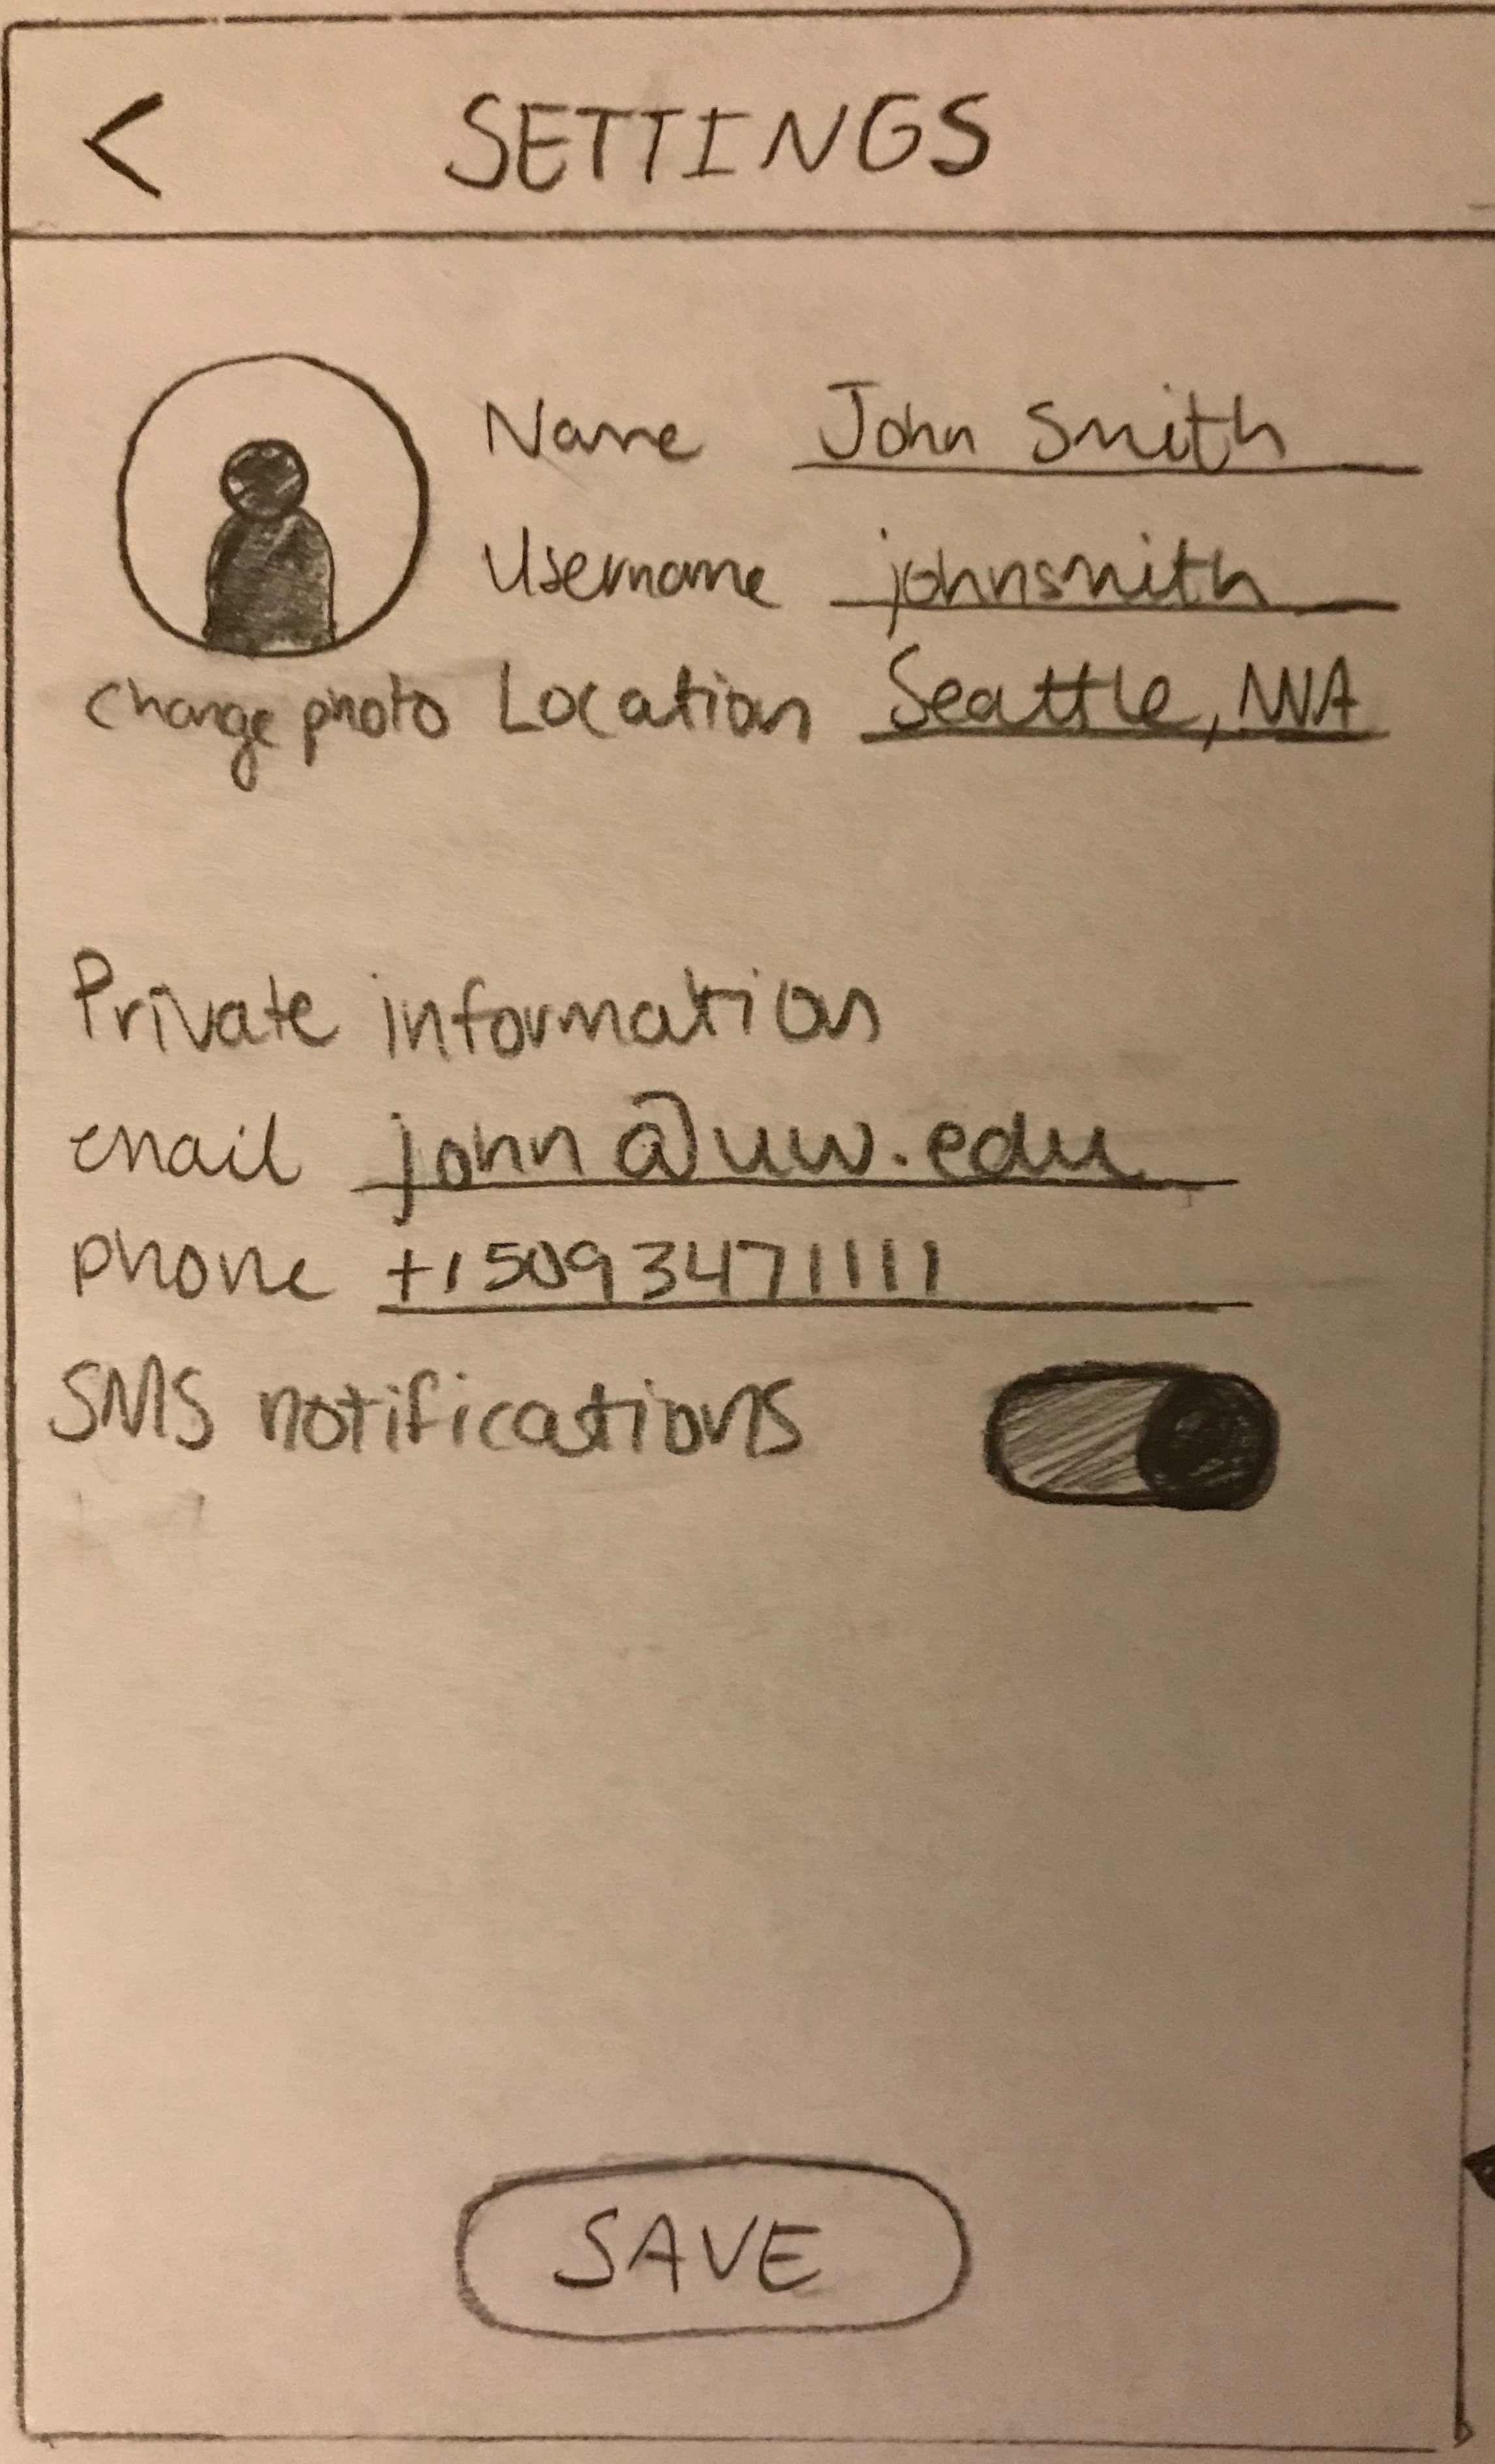 < SETTINGS
Name John Smith
Username johnsmith
change photo Location Seattle, WA
Private information
email john@uw.edu
phone +15093471111
SMS notifications
SAVE